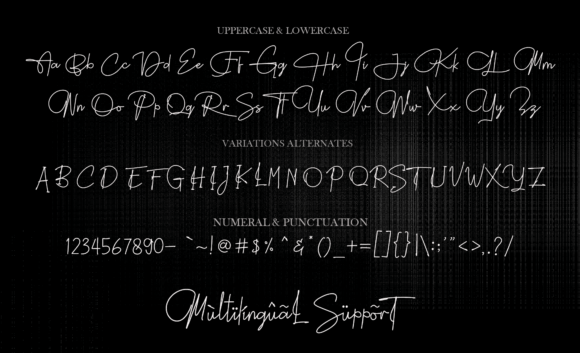 UPPERCASE & LOWERCASE
Aa Bb Cc Dd Ee Ff Gg Hh Ii Jj Kk LL Mm
Nn Oo Pp Qq Rr Ss Tt Uu Vv Ww Xx Yy Zz
VARIATIONS ALTERNATES
A B C D E F G H I J K L M N O P Q R S T U V W X Y Z
NUMERAL & PUNCTUATION
1234567890- `~!@#$%^&*()_+=[]{}|\:;'"<>,.?/
Mùltilingûãl Süppõrt